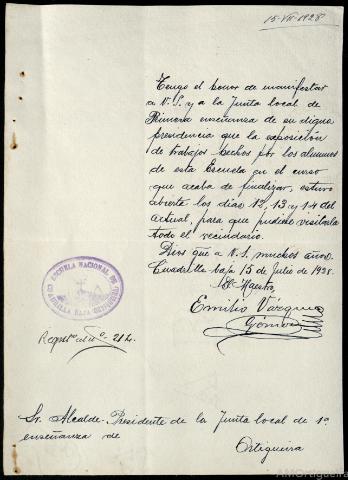 15-VII-1928
Tengo el honor de manifestar
a V.S. y a la Junta local de
Primera enseñanza de su digna
presidencia que la exposición
de trabajos hechos por los alumnos
de esta Escuela en el curso
que acaba de finalizar, estuvo
abierta los dias 12, 13 y 14 del
actual, para que pudiese visitarla
todo el vecindario.
Dios gue a V.S. muchos años.
15 de Julio de 1928.
El Maestro,
Emilio Vázquez
Gómez
ESCUELA NACIONAL DE
ORTIGUEIRA
al nº 212.
Sr. Alcalde-Presidente de la Junta local de 1ª
enseñanza de
Ortigueira
AMOrtigueira